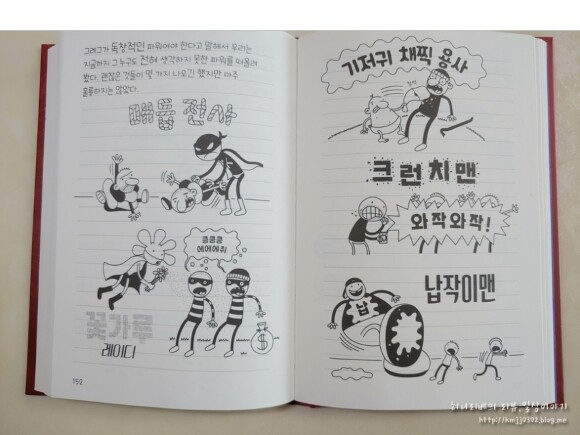 그레그가 독창적인 파워여야 한다고 말해서 우리는
지금까지 그 누구도 전혀 생각하지 못한 파워를 떠올려
봤다. 괜찮은 것들이 몇 가지 나오긴 했지만 아주
훌륭하지는 않았다.
매듭 전사
킁킁킁
에에에취
꽃가루
레이디
192
기저귀 채찍 용사
찰싹
크런치맨
와작와작!
납
납작이맨
http://kmjj2302.blog.me